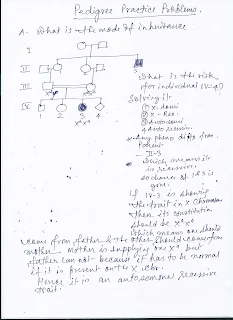 Pedigree Practice Problems.
A- What is the mode of inheritance
I
II
III
IV
1 2 3 4
What is the risk
for individual IV-4?
Solving it
① X-domi
② X-Rec.
③ Auto domi
4 Auto recessive.
Any pheno diff from
Parent
II-3
which means it
is recessive.
so chance of 1 & 3 is
gone.
If IV-3 is showing
the trait in X Chromosome
then its constitution
should be
which means on should
come from father & the other should come from
mother. Mother is supplying one but
father can not because it has to be normal
if it is present on the X chr.
Hence it is an autosomal recessive
trait.